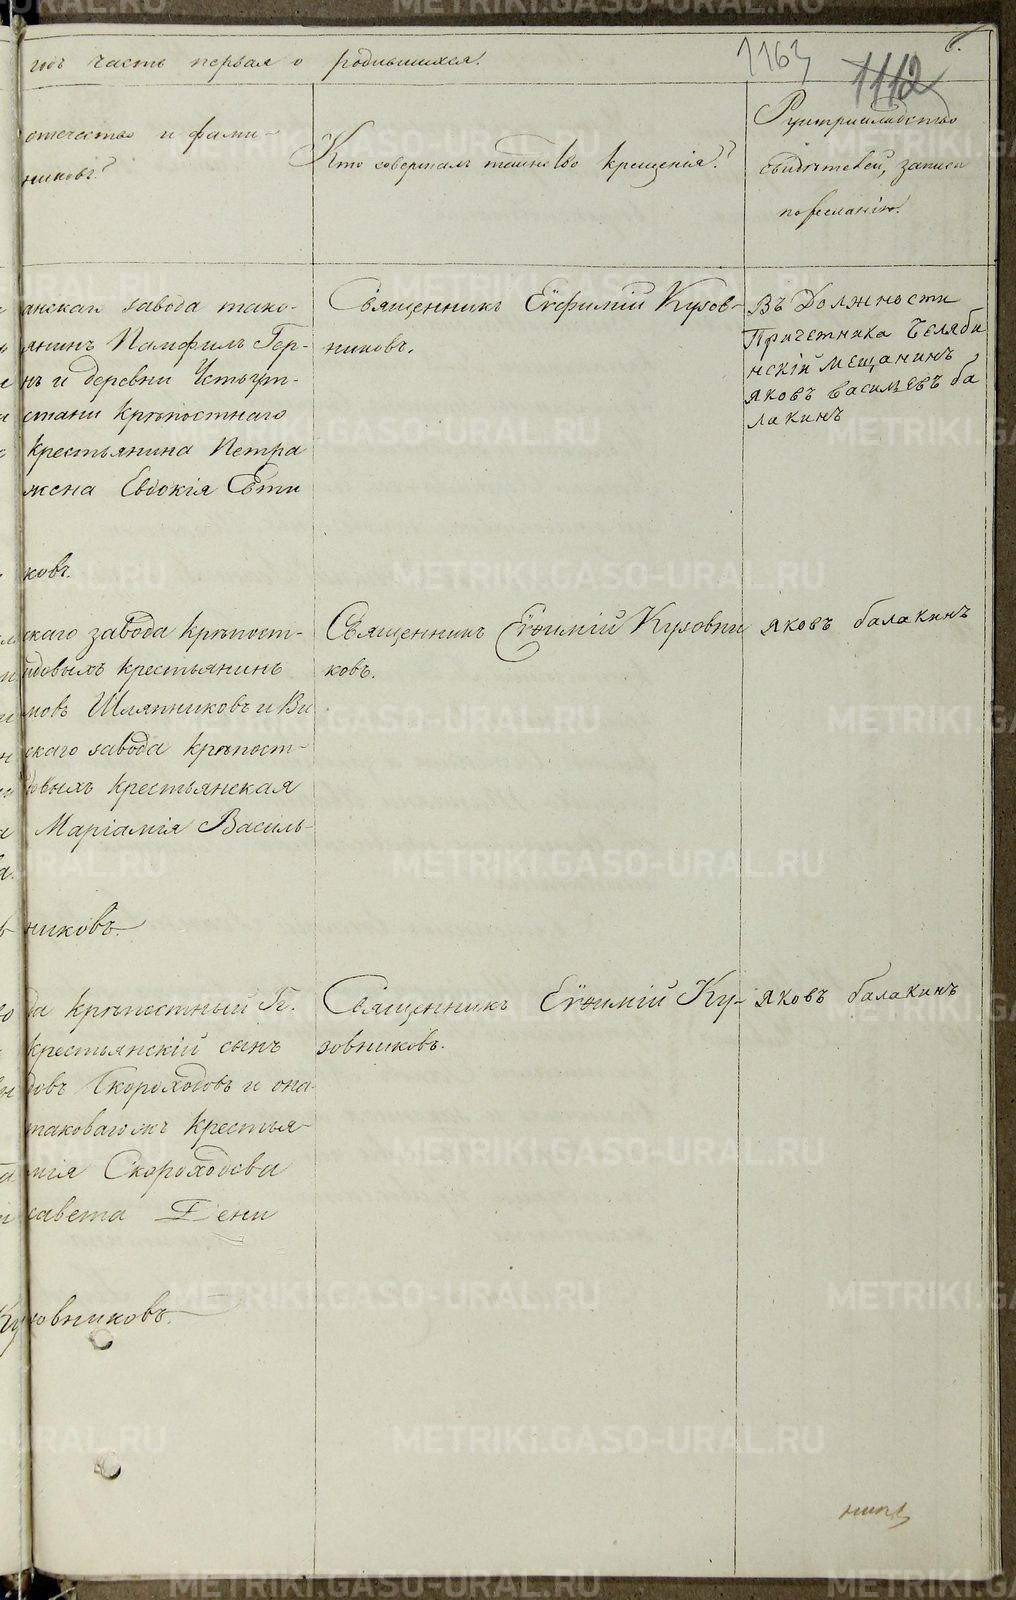 годъ часть первая о родившихся.
1163
1112
отечество и фами-
никовъ?
Кто совершалъ таинство крещенія?
Рукоприкладство
свидѣтелей, записи
по желанію.
анскаи завода тако-
янинъ Памфилъ Гер-
нъ и деревни
стани крѣпостнаго
крестьянина Петра
жена Евдокія Ѳети
ковъ.
Священникъ Евфимій Кузов-
никовъ.
Въ Должности
Причетника Челяби
нскій мещанинъ
яковъ Васильевъ ба
лакинъ
скаго завода крѣпост-
идовыхъ крестьянинъ
мовъ Шляпниковъ и Ви
скаго завода крѣпост-
довыхъ крестьянская
Маріамія Василь-
ва.
никовъ.
Священникъ Евѳимій Кузовни
ковъ.
яковъ балакинъ
да крѣпостный Г.
крестьянскій сынъ
довъ Скороходовъ и она
таковагожъ крестья-
нія Скороходова
савета Дени
Кузовниковъ.
Священникъ Евѳимій Ку-
зовниковъ.
яковъ балакинъ
METRIKI.GASO-URAL.RU